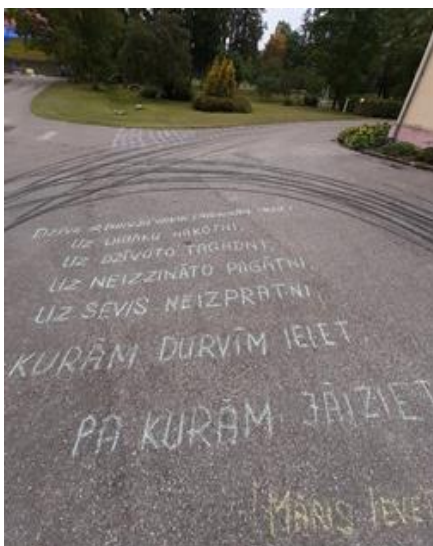 DZĪVE
UZ LABĀKU NĀKOTNI,
UZ DZĪVOTO TAGADNI,
UZ NEIZZINĀTO PAGĀTNI,
UZ SEVIS NEIZPRATNI,
KURĀM DURVĪM IEIET,
PA KURĀM JĀIZIET
MĀRIS IEVE